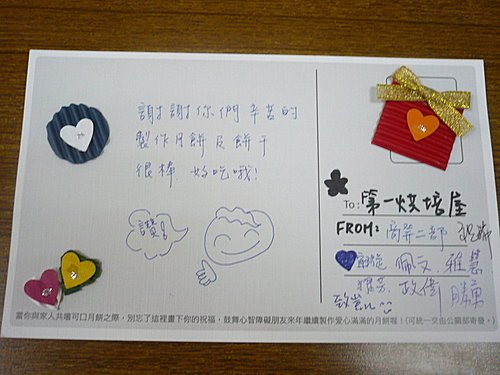 謝謝你們辛苦的
製作月餅及餅干
很棒 好吃哦!
讚!
TO: 第一烘培屋
FROM: 商芽二部
佩文.雅慧
致意
當你與家人共嚐可口月餅之際,別忘了這裡畫下你的祝福,鼓舞心智障礙朋友來年繼續製作愛心滿滿的月餅喔!(可統一交由公關部寄發。)